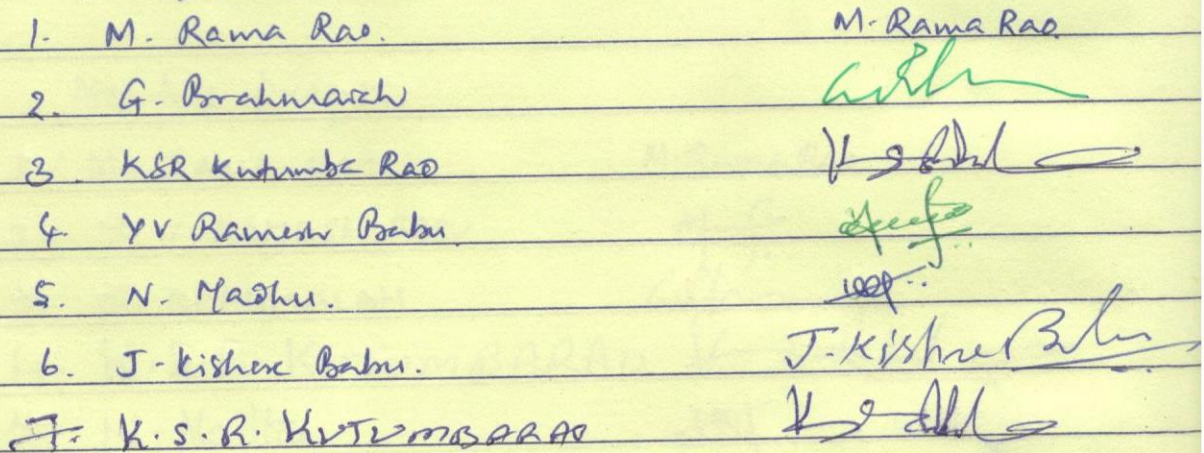 1. M. Rama Rao. M. Rama Rao
2. G. Brahmaiah
3. KSR Kutumba Rao
4. YV Ramesh Babu.
5. N. Madhu.
6. J. Kishore Babu. J. Kishore Babu
7. K.S.R. KUTUMBARAO